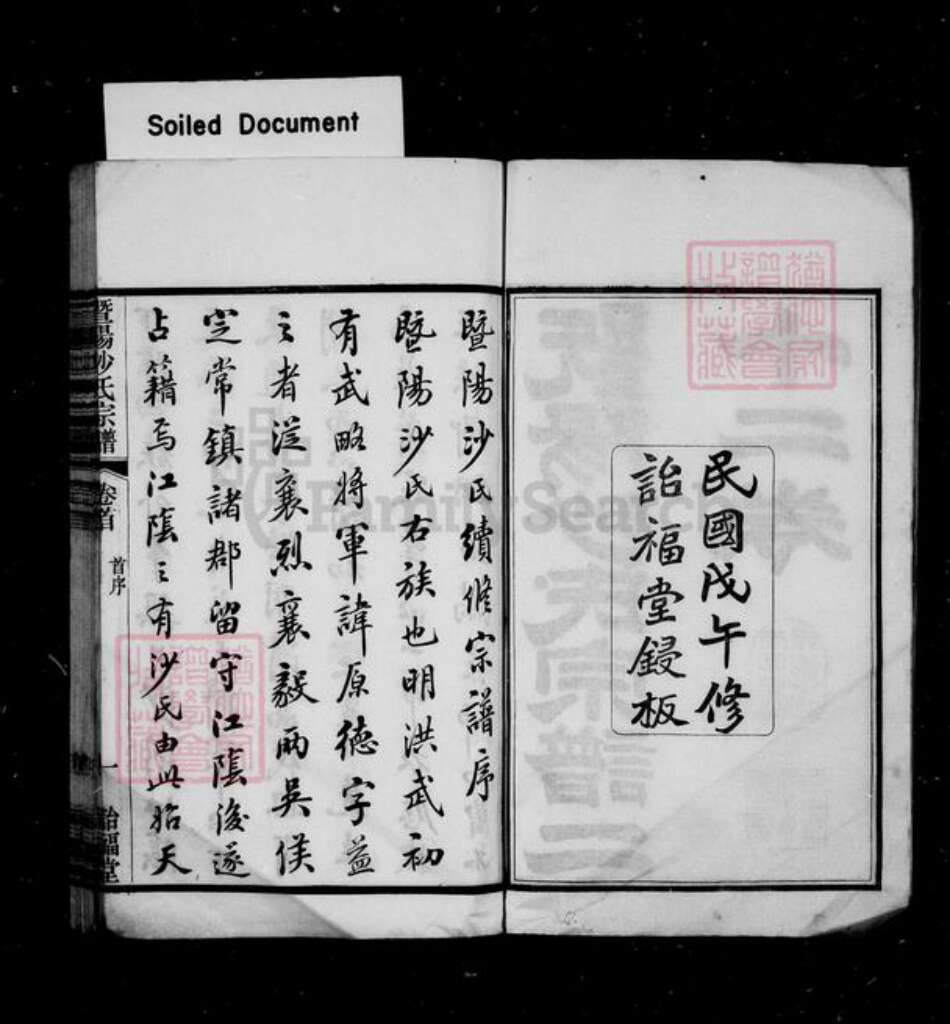 Soiled Document
民國戊午修
詒福堂鋟板
暨陽沙氏續修宗譜序
暨陽沙氏右族也明洪武初
有武略將軍諱原德字益
之者從襄烈襄毅兩吳侯
定常鎮諸郡留守江陰後遂
占籍焉江陰之有沙氏由此始天
暨陽沙氏宗譜
卷首
首序
一
詒福堂
FamilySearch